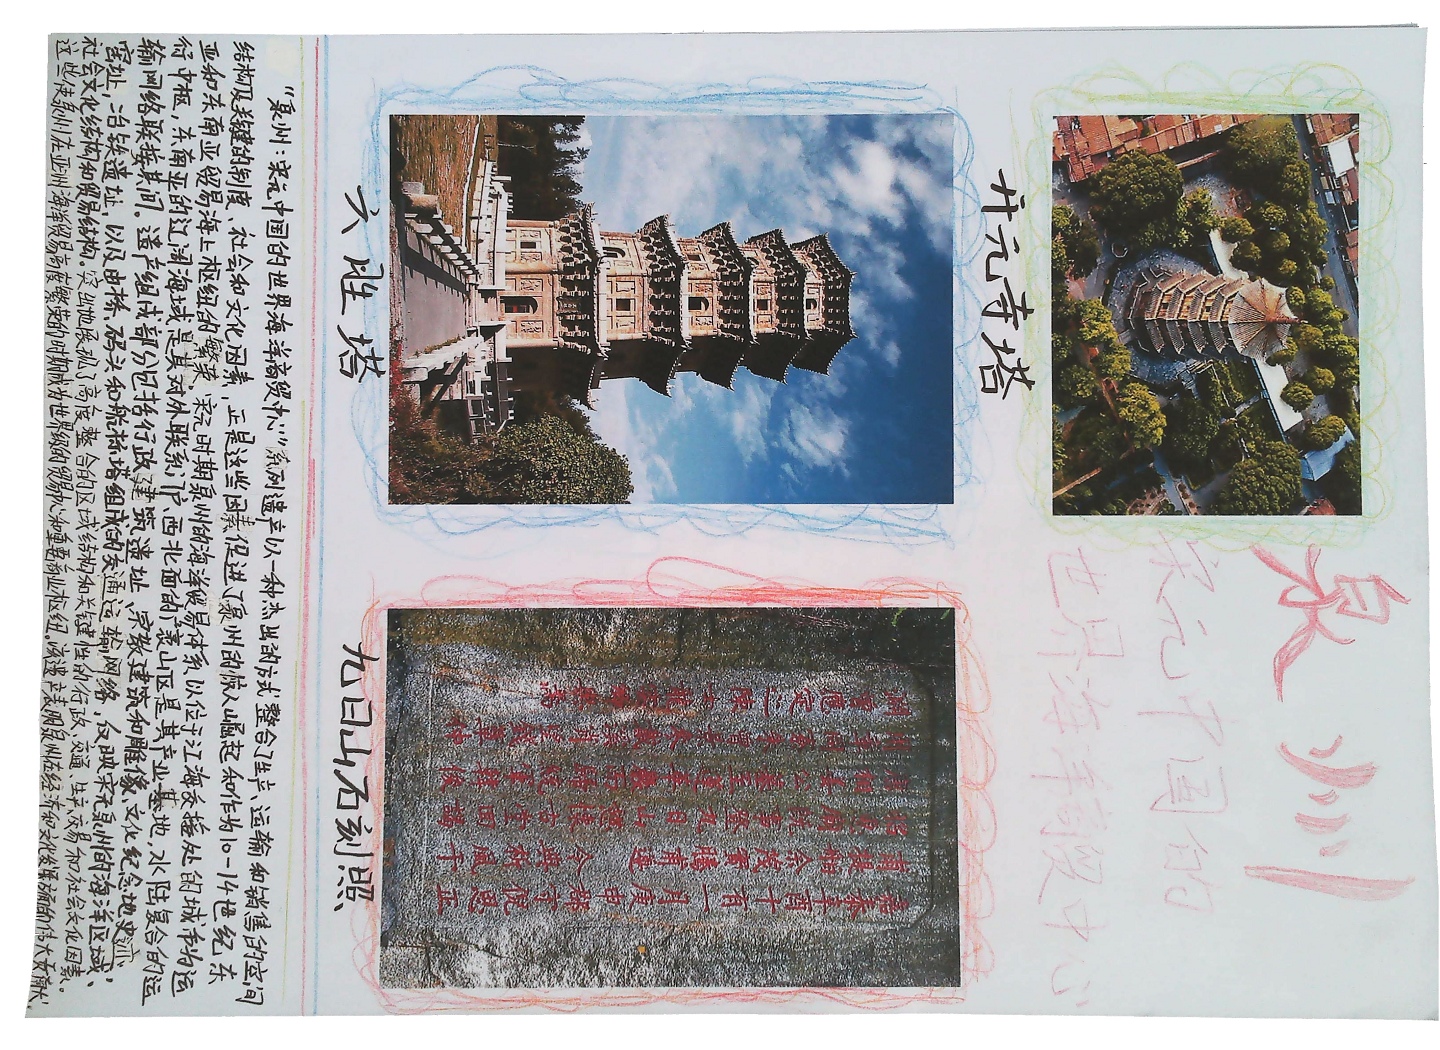 泉州
宋元中国的
世界海洋商贸中心
开元寺塔
嘉泰辛酉十有一月庚申郡守倪思正
甫提舶余茂实腾甫遵令典祈风于
昭惠庙既事登九日山憩怀古堂回谒
唐相姜公墓至莲华岩而归统军韩俊
六胜塔
九日山石刻照
“泉州：宋元中国的世界海洋商贸中心”系列遗产以一种杰出的方式整合了生产、运输和销售的空间
结构及关键的制度、社会和文化因素，正是这些因素促进了泉州的惊人崛起和作为10-14世纪东
亚和东南亚贸易海上枢纽的繁荣。宋元时期泉州的海洋贸易体系以位于江海交接处的城市为运
行中枢，东南亚的辽阔海域是其对外联系门户、西北面的广袤山区是其产业基地，水陆复合的运
输网络联接其间。遗产组成部分包括行政建筑遗址、宗教建筑和雕像、文化纪念地史迹、
窑址，冶铁遗址，以及由桥、码头和航标塔组成的交通运输网络，仅映宋元泉州的海洋区域、
社会文化结构和贸易结构。突出地展现了高度整合的区域结构和关键性的行政、交通、生产、交易和社会文化因素。
这些使泉州在亚洲海洋贸易高度繁荣的时期成为世界级的贸易中心和重要商业枢纽。该遗产表明泉州在经济和文化发展方面的伟大贡献大。